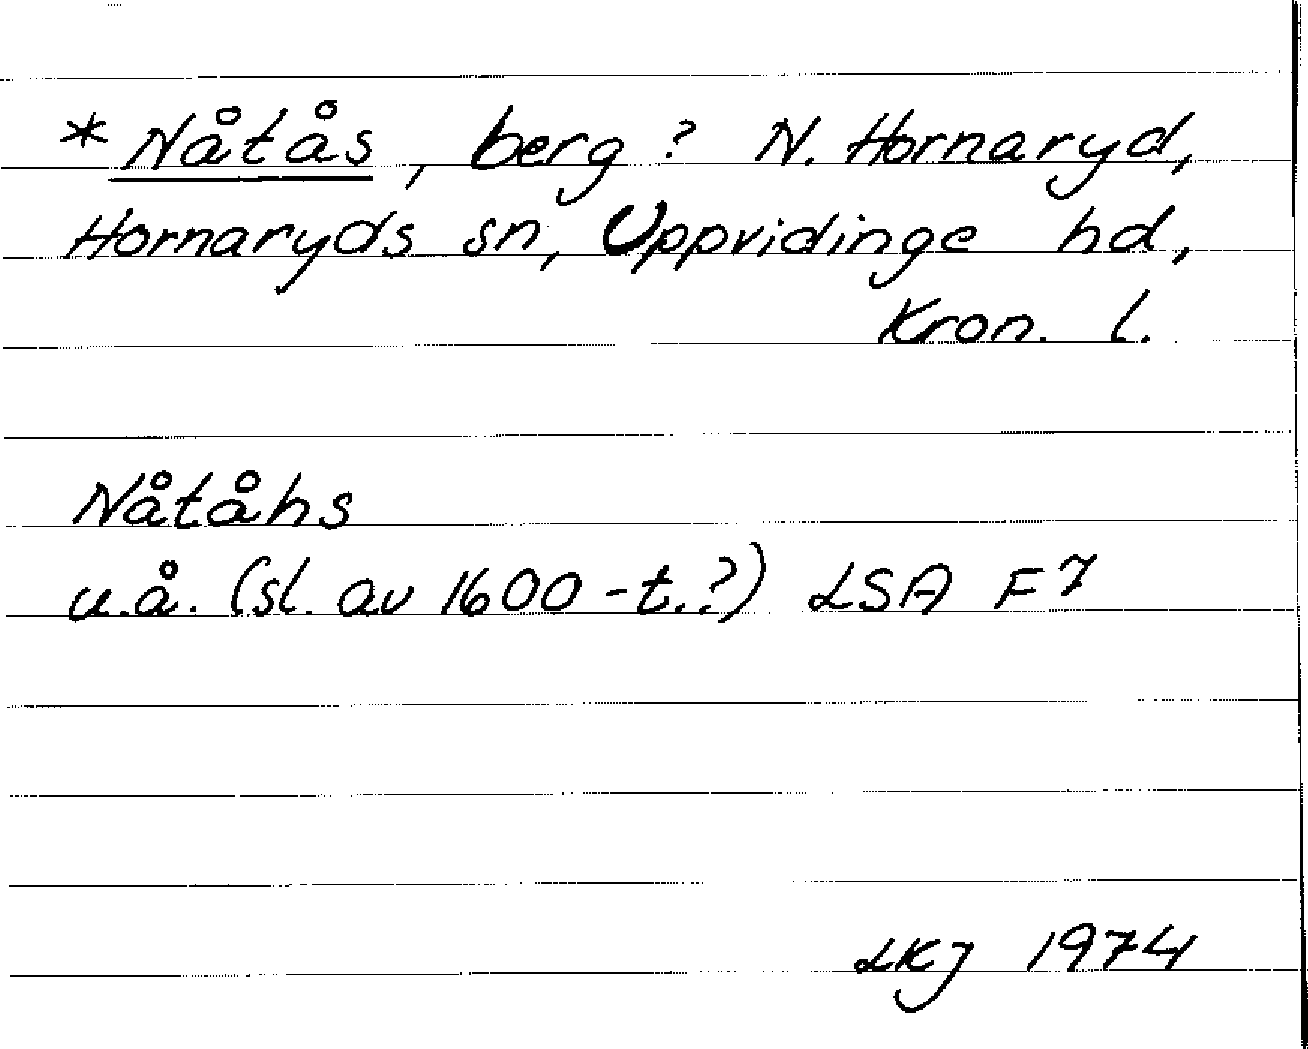 * Nåtås, berg? N. Hornaryd,
Hornaryds sn, Uppvidinge hd,
Kron. l.
Nåtåhs
u.å. (sl. av 1600-t.?) LSA F7
LKJ 1974